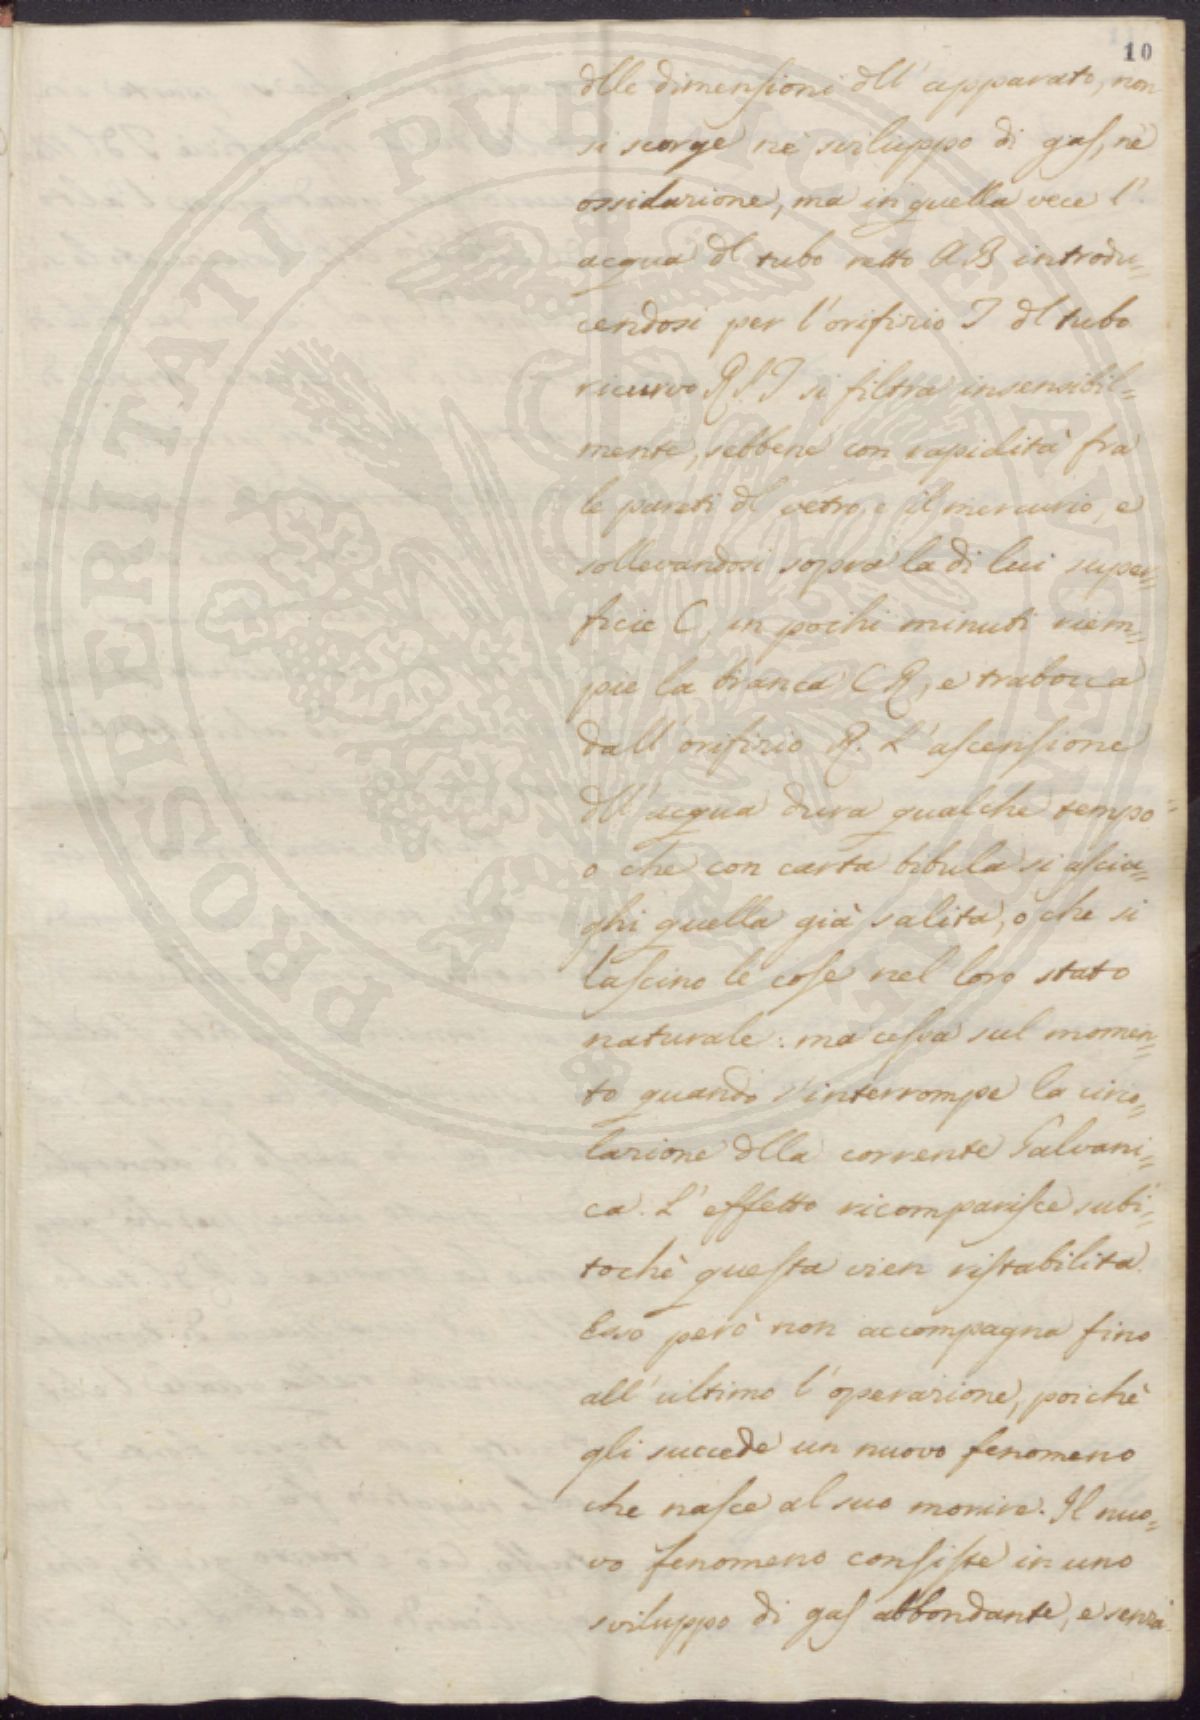 10
dlle dimensioni dll' apparato, non
si scorge nè sviluppo di gas, nè
ossidazione, ma in quella vece l'
acqua dl tubo retto AB introdu=
cendosi per l'orifizio T dl tubo
ricurvo RST si filtra insensibil=
mente, sebbene con rapidità fra
le pareti dl vetro, e il mercurio, e
sollevandosi sopra la di lui super=
ficie C, in pochi minuti riem=
pie la branca CR, e trabocca
dall' orifizio R. L' ascensione
dll' acqua dura qualche tempo
o che con carta bibula si asciu=
ghi quella già salita, o che si
lascino le cose nel loro stato
naturale: ma cessa sul momen=
to quando s'interrompe la circo=
lazione dlla corrente Galvani=
ca. L' effetto ricomparisce subi=
tochè questa vien ristabilita.
Esso però non accompagna fino
all' ultimo l' operazione, poichè
gli succede un nuovo fenomeno
che nasce al suo morire. Il nuo=
vo fenomeno consiste in uno
sviluppo di gas abbondante, e senza
PROSPERITATI PUBLICAE AUGENDAE